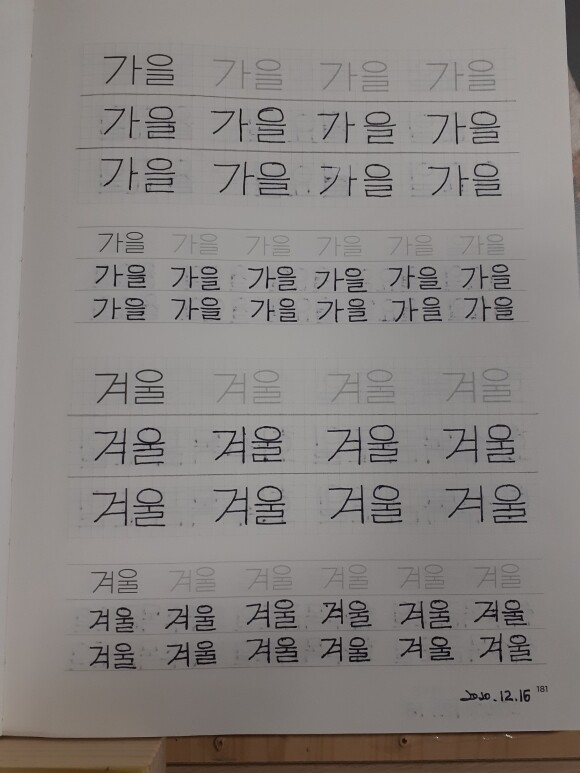 가을 가을 가을 가을
가을 가을 가을 가을
가을 가을 가을 가을
가을 가을 가을 가을 가을 가을
가을 가을 가을 가을 가을 가을
가을 가을 가을 가을 가을 가을
겨울 겨울 겨울 겨울
겨울 겨울 겨울 겨울
겨울 겨울 겨울 겨울
겨울 겨울 겨울 겨울 겨울 겨울
겨울 겨울 겨울 겨울 겨울 겨울
겨울 겨울 겨울 겨울 겨울 겨울
2020.12.16 181